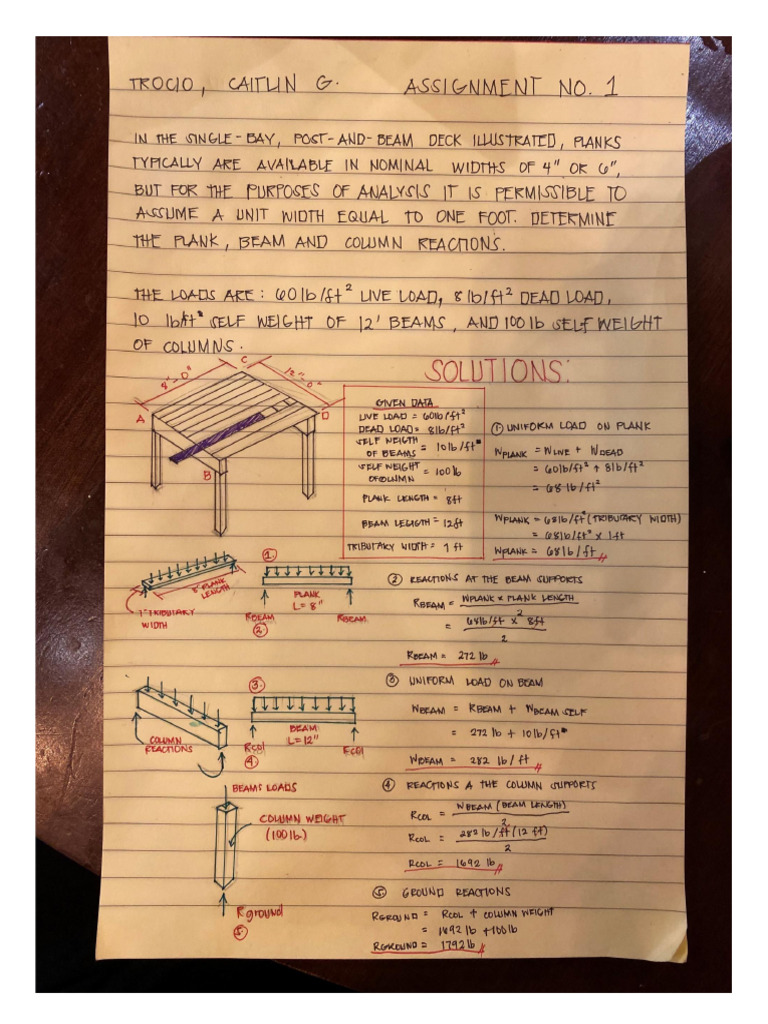 TROCIO, CAITLIN G. ASSIGNMENT NO. 1
IN THE SINGLE-BAY, POST-AND-BEAM DECK ILLUSTRATED, PLANKS
TYPICALLY ARE AVAILABLE IN NOMINAL WIDTHS OF 4" OR 6",
BUT FOR THE PURPOSES OF ANALYSIS IT IS PERMISSIBLE TO
ASSUME A UNIT WIDTH EQUAL TO ONE FOOT. DETERMINE
THE PLANK, BEAM AND COLUMN REACTIONS.
THE LOADS ARE: 60 lb/ft² LIVE LOAD, 8 lb/ft² DEAD LOAD,
10 lb/ft SELF WEIGHT OF 12' BEAMS, AND 100 lb SELF WEIGHT
OF COLUMNS.
SOLUTIONS:
8'-0"
C
12'-0"
A
D
B
GIVEN DATA
LIVE LOAD = 60lb/ft²
DEAD LOAD = 8lb/ft²
SELF WEIGTH
OF BEAMS = 10lb/ft
SELF WEIGHT
OF COLUMN = 100 lb
PLANK LENGTH = 8ft
BEAM LENGTH = 12ft
TRIBUTARY WIDTH = 1 ft
① UNIFORM LOAD ON PLANK
WPLANK = WLIVE + WDEAD
= 60lb/ft² + 8lb/ft²
= 68 lb/ft²
WPLANK = 68lb/ft² (TRIBUTARY WIDTH)
= 68lb/ft² x 1ft
WPLANK = 68lb/ft
8' PLANK
LENGTH
1' TRIBUTARY
WIDTH
1.
PLANK
L = 8"
RBEAM
RBEAM
2.
② REACTIONS AT THE BEAM SUPPORTS
RBEAM = WPLANK x PLANK LENGTH
2
= 68lb/ft x 8ft
2
RBEAM = 272 lb
COLUMN
REACTIONS
3.
BEAM:
L = 12"
RCOl
RCOl
4.
③ UNIFORM LOAD ON BEAM
WBEAM = RBEAM + WBEAM SELF
= 272 lb + 10lb/ft
WBEAM = 282 lb/ft
④ REACTIONS A THE COLUMN SUPPORTS
RCOL = WBEAM (BEAM LENGTH)
2
RCOL = 282 lb/ft (12 ft)
2
RCOL = 1692 lb
BEAMS LOADS
COLUMN WEIGHT
(100lb)
R ground
5.
⑤ GROUND REACTIONS
RGROUND = RCOL + COLUMN WEIGHT
= 1692 lb + 100lb
RGROUND = 1792lb